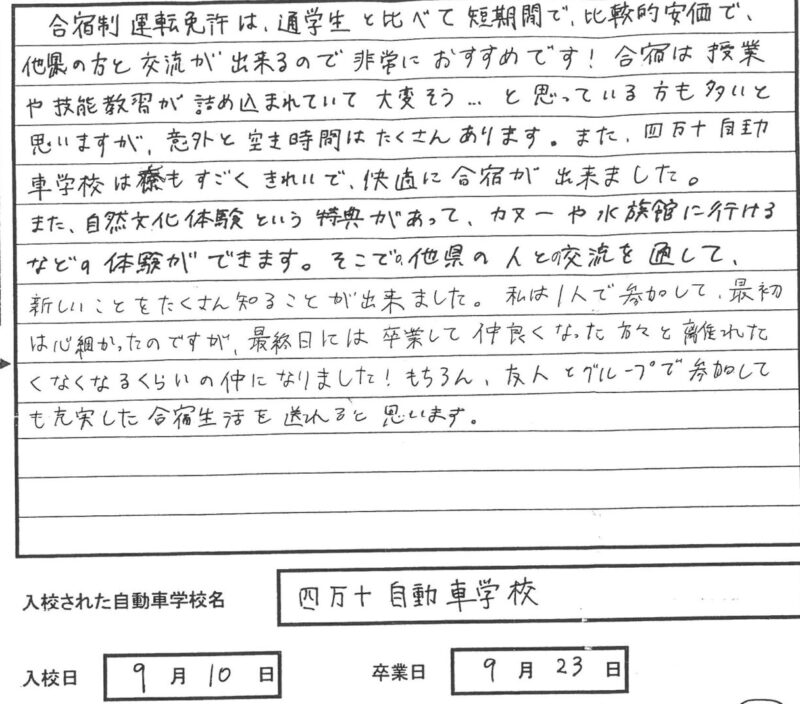 合宿制運転免許は、通学生と比べて短期間で、比較的安価で、
他県の方と交流が出来るので非常におすすめです！合宿は授業
や技能教習が詰め込まれていて大変そう…と思っている方も多いと
思いますが、意外と空き時間はたくさんあります。また、四万十自動
車学校は寮もすごくきれいで、快適に合宿が出来ました。
また、自然文化体験という特典があって、カヌーや水族館に行ける
などの体験ができます。そこで、他県の人との交流を通して、
新しいことをたくさん知ることが出来ました。私は1人で参加して、最初
は心細かったのですが、最終日には卒業して仲良くなった方々と離れた
くなくなるくらいの仲になりました！もちろん、友人とグループで参加して
も充実した合宿生活を送れると思います。
入校された自動車学校名 四万十自動車学校
入校日 9月10日 卒業日 9月23日